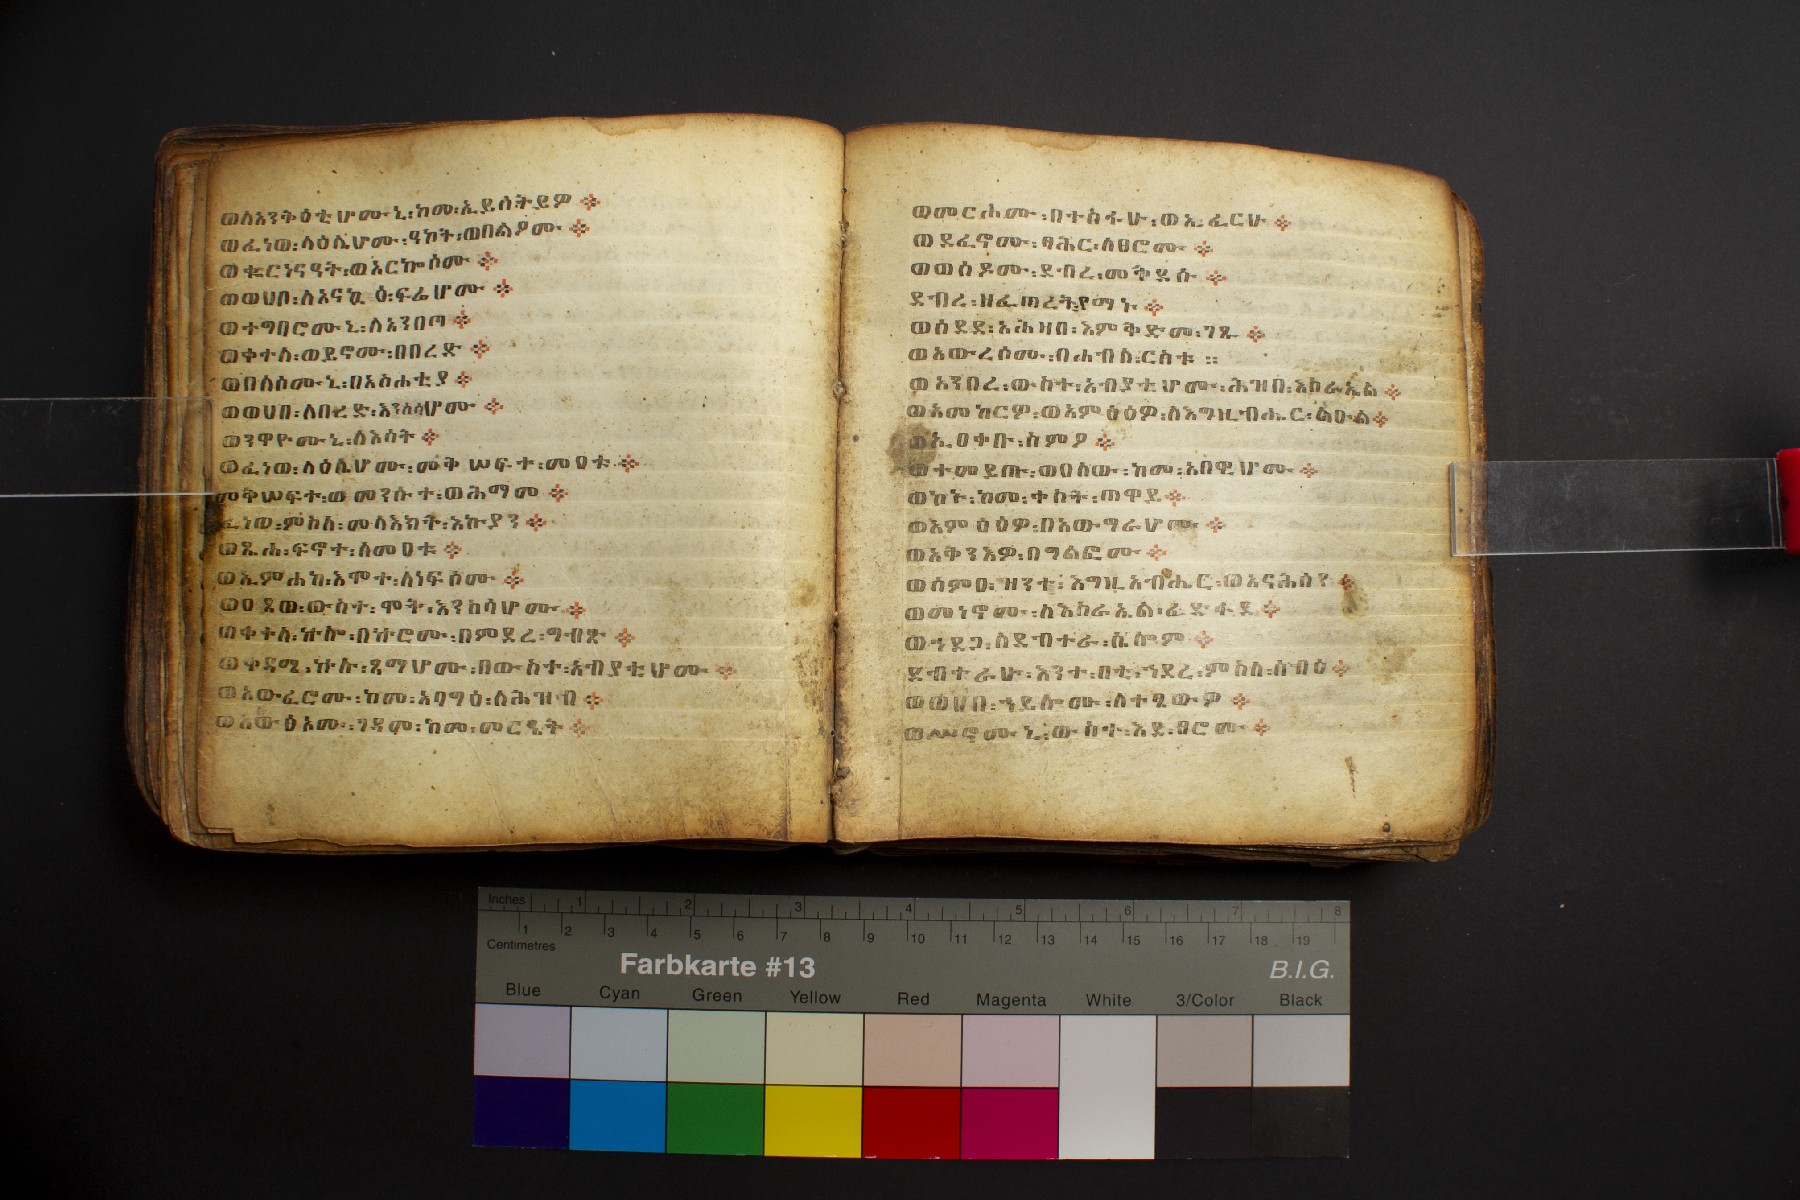 ወለአንቅዕቲሆሙ፡ኒ፡ከመ፡ኢይሰትይዎ ፨
ወፈነወ፡ላዕሌሆሙ፡ዓኮት፡ወበልዖሙ ፨
ወቈርነናዓት፡ወአርኰሶሙ ፨
ወወሀበ፡ለአናኳዕ፡ፍሬሆሙ ፨
ወተግባሮሙ፡ኒ፡ለአንበጣ ፨
ወቀተለ፡ወይኖሙ፡በበረድ ፨
ወበለሶሙ፡ኒ፡በአስሐቲያ ፨
ወወሀበ፡ለበረድ፡እንስሳሆሙ ፨
ወንዋዮሙ፡ኒ፡ለእሳት ፨
ወፈነወ፡ላዕሌሆሙ፡መቅሠፍተ፡መዐቱ ፨
መቅሠፍተ፡ወመንሱተ፡ወሕማመ ፨
ፈነወ፡ምስለ፡መላእክት፡እኩያን ፨
ወጼሐ፡ፍኖተ፡ለመዐቱ ፨
ወኢምሐከ፡እሞተ፡ለነፍሶሙ ፨
ወዐጸወ፡ውስተ፡ሞት፡እንስሳሆሙ ፨
ወቀተለ፡ኵሎ፡በኵሮሙ፡በምድረ፡ግብጽ ፨
ወቀዳሜ፡ኵሉ፡ጻማሆሙ፡በውስተ፡አብያቲሆሙ ፨
ወአውፈሮሙ፡ከመ፡አባግዕ፡ለሕዝብ ፨
ወአውዕአሙ፡ገዳመ፡ከመ፡መርዔት ፨
ወመርሖሙ፡በተስፋሁ፡ወኢፈርሁ ፨
ወደፈኖሙ፡ባሕር፡ለፀሮሙ ፨
ወወሰዶሙ፡ደብረ፡መቅደሱ ፨
ደብረ፡ዘፈጠረት፡የማኑ ፨
ወሰደደ፡አሕዛበ፡እምቅድመ፡ገጹ ፨
ወአውረሶሙ፡በሐብለ፡ርስቱ ።
ወአንበረ፡ውስተ፡አብያቲሆሙ፡ሕዝበ፡እስራኤል ፨
ወአመከርዎ፡ወአምዕዕዎ፡ለእግዚአብሔር፡ልዑል ፨
ወኢዐቀቡ፡ስምዖ ፨
ወተመይጡ፡ወዐለው፡ከመ፡አበዊሆሙ ፨
ወኮኑ፡ከመ፡ቀስት፡ጠዋይ ፨
ወአምዕዕዎ፡በአውግራሆሙ ፨
ወአቅንእዎ፡በግልፎሙ ፨
ወሰምዐ፡ዘንተ፡እግዚአብሔር፡ወአናሕሰየ ፨
ወመነኖሙ፡ለእስራኤል፡ፈድፋደ ፨
ወኀደጋ፡ለደብተራ፡ሴሎም ፨
ደብተራሁ፡እንተ፡ባቲ፡ኀደረ፡ምስለ፡ሰብእ ፨
ወወሀበ፡ኀይሎሙ፡ለተፄውዎ ፨
ወሥኖሙ፡ኒ፡ውስተ፡እደ፡ፀሮሙ ፨
Inches 1 2 3 4 5 6 7 8
Centimetres 1 2 3 4 5 6 7 8 9 10 11 12 13 14 15 16 17 18 19
Farbkarte #13 B.I.G.
Blue Cyan Green Yellow Red Magenta White 3/Color Black